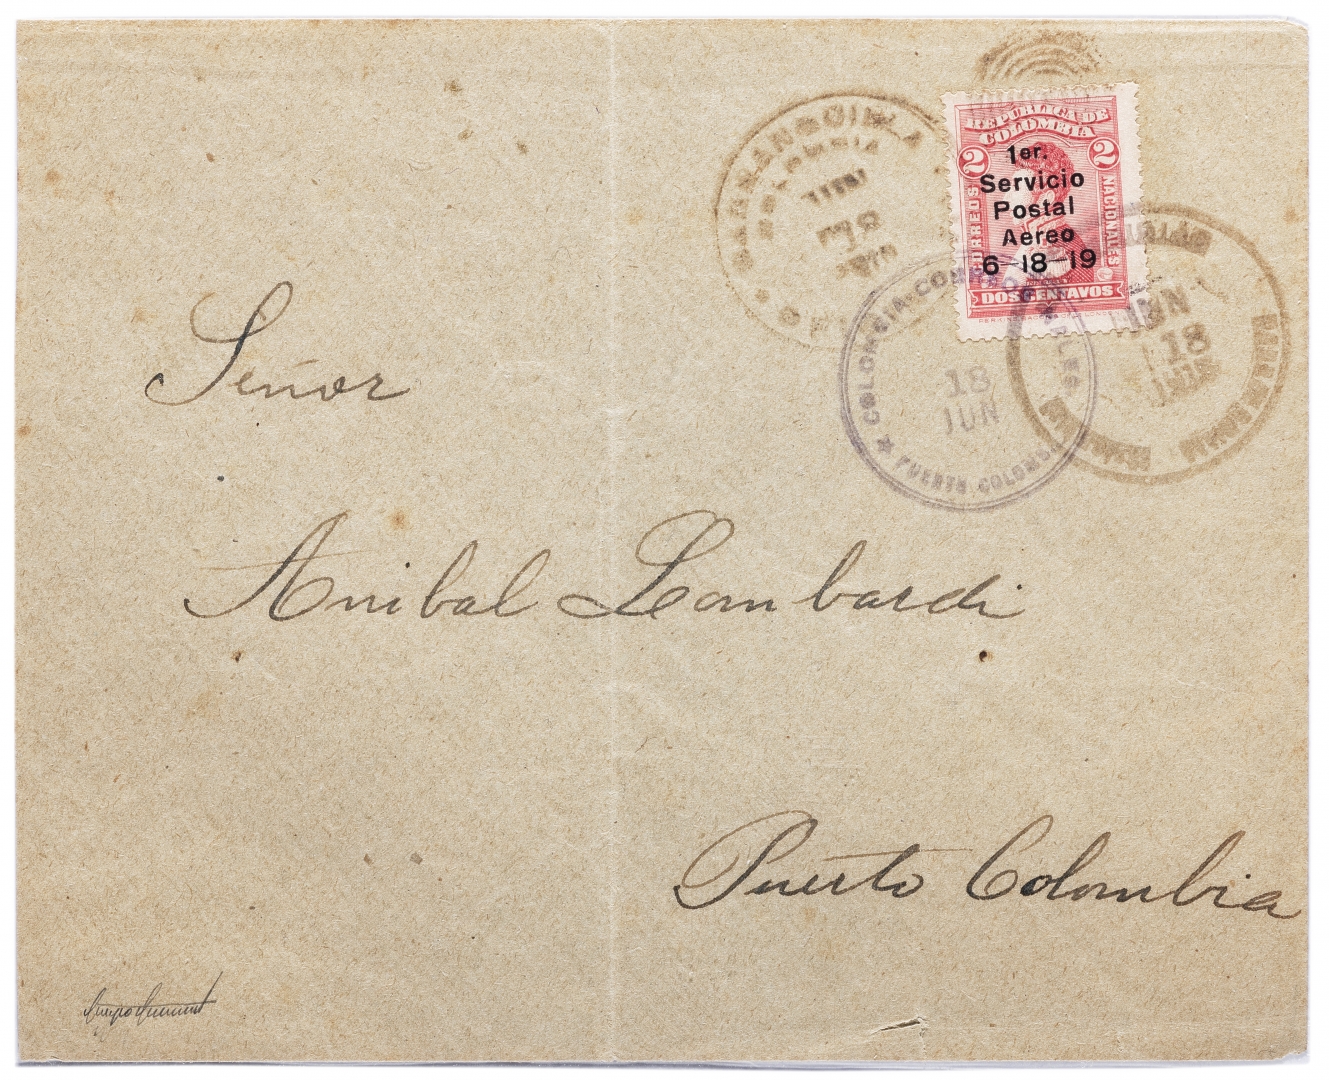 BARRANQUILLA
COLOMBIA
REPÚBLICA DE
COLOMBIA
2 2
CORREOS NACIONALES
1er.
Servicio
Postal
Aereo
6-18-19
DOS CENTAVOS
COLOMBIA-CORREOS
18
JUN
PUERTO COLOMB
JUN
18
1919
Señor
Anibal Lombardi
Puerto Colombia